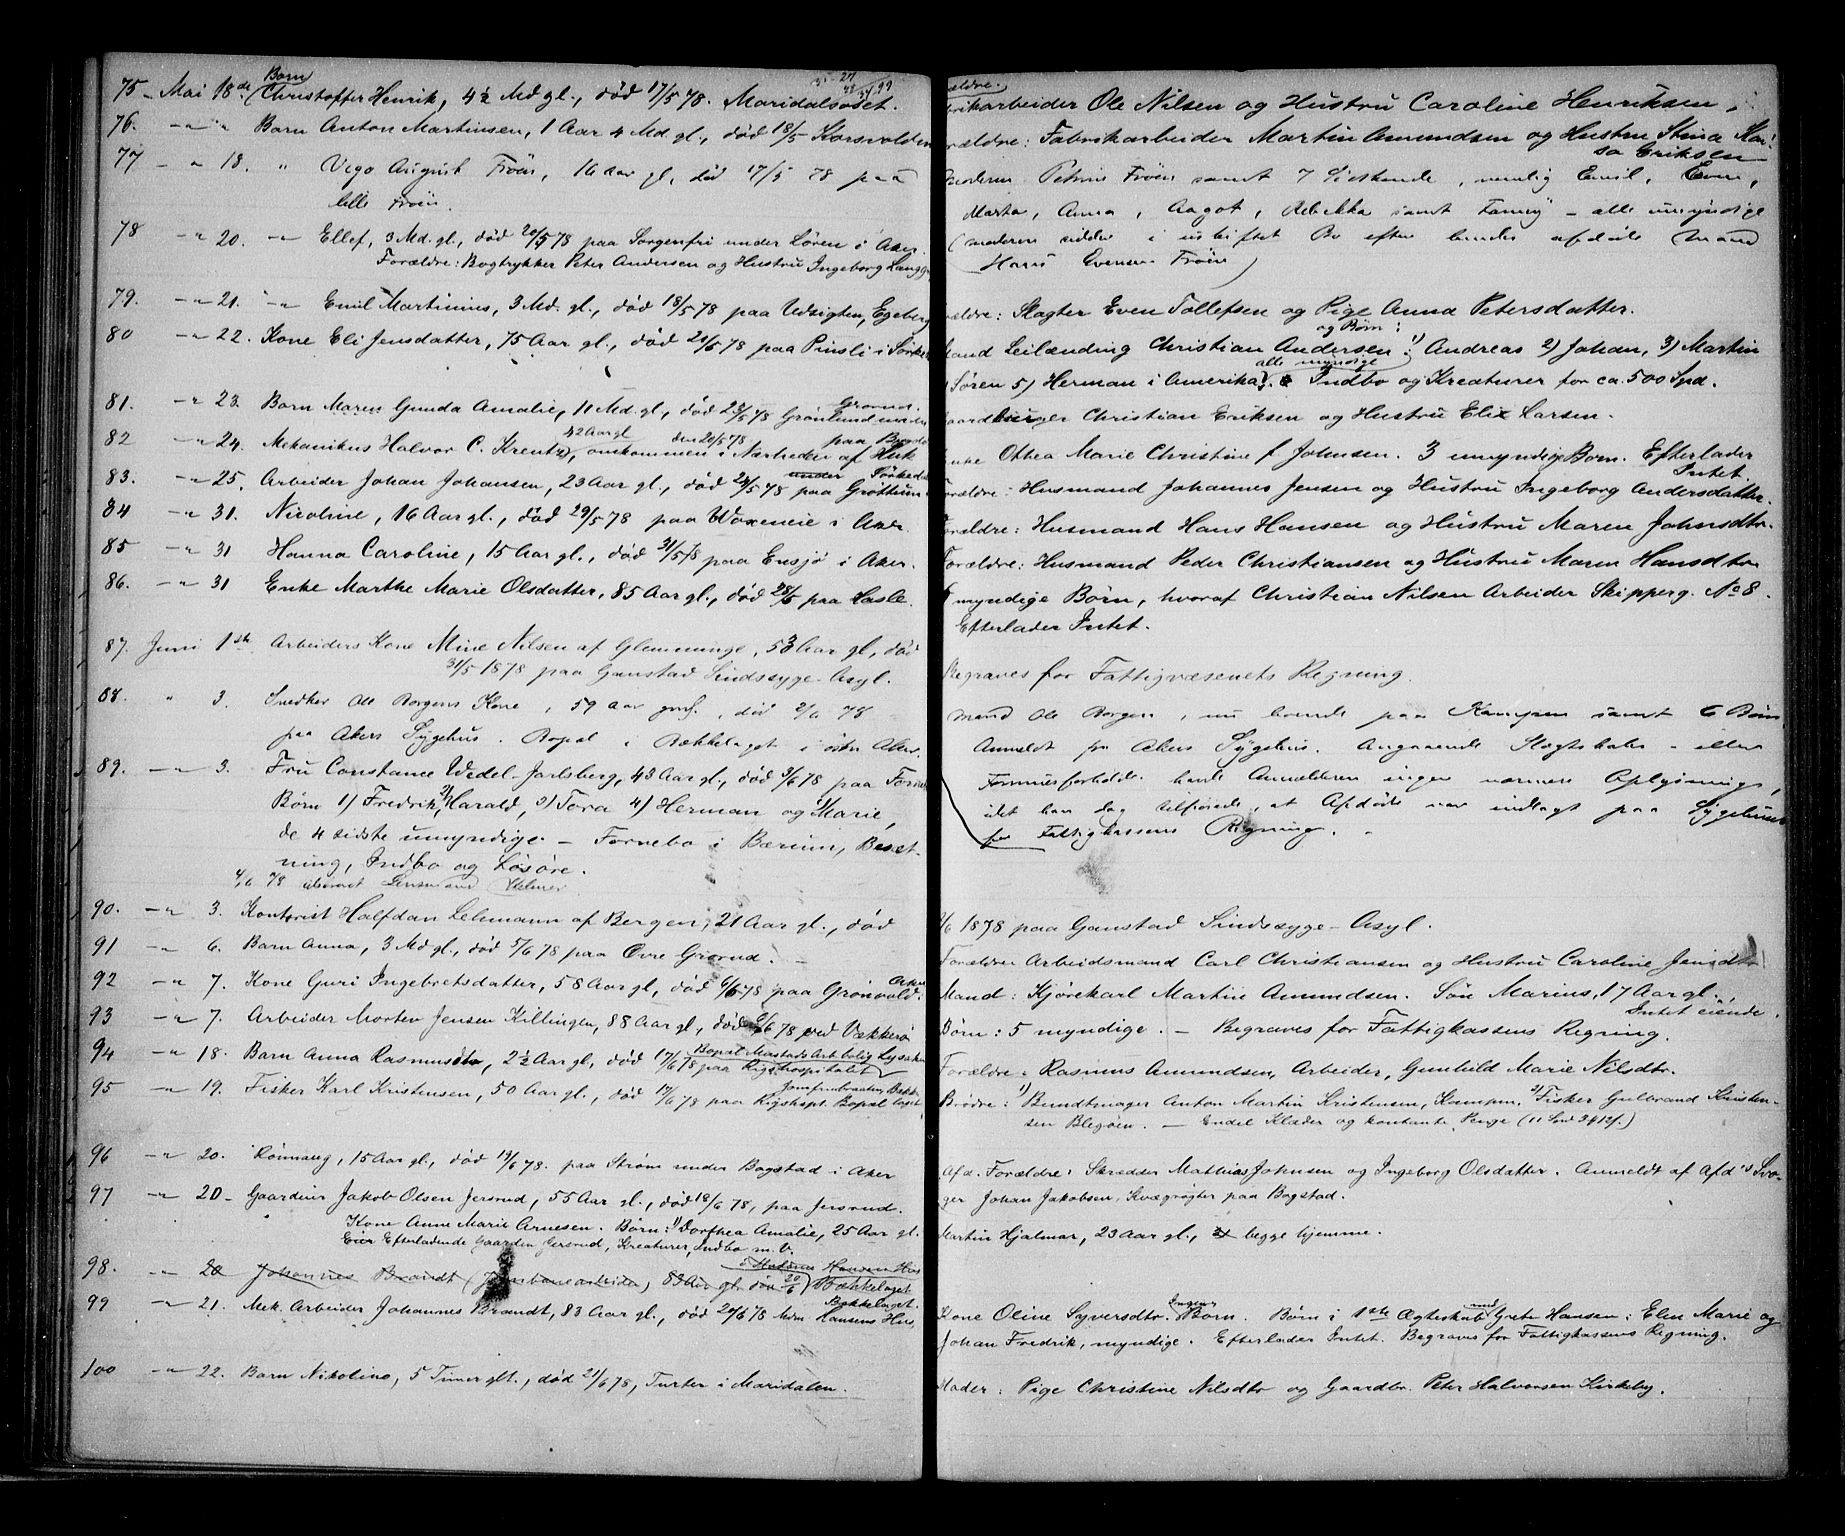 75 - Mai 18de Barn Christoffer Henrik, 4½ Md gl., død 17/5 78. Maridalsoset.
76. -"- " Barn Anton Martinsen, 1 Aar 4 Md. gl., død 18/5 Korsvolden
77 - " 18. " Vigo August Frøen, 16 aar gl, død 17/5 78 paa
lille Frøen.
78 -" 20. -"- Ellef, 3 Md. gl., død 20/5 78 paa Sorgenfri under Løren i Aker
Forældre: Bogtrykker Peter Andersen og Hustru Ingeborg
79. -" 21. -"- Emil Martinius, 3 Md. gl., død 18/5 78 paa Udsigten, Egeberg
80 -" 22. Kone Eli Jensdatter, 75 Aar gl., død 20/5 78 paa Pinsli i
81. -" 23. Barn Maren Gunda Amalie, 11 Md. gl., død 22/5 78 Grønlund under Grorud.
82 -" 24. Mekanikus Halvor C. Krentz, 42 Aar gl omkommen den 20/5 78 i Nærheden af Huk paa
83. -" 25. Arbeider Johan Johansen, 23 Aar gl., død 23/5 78 paa Grøttum under
84 -" 31. Nicoline, 16 Aar gl., død 29/5 78 paa Voxeneie i Aker.
85 -" 31 Hanna Caroline, 15 Aar gl., død 31/5 78 paa Ensjø i Aker.
86. -" 31 Enke Marthe Marie Olsdatter, 85 Aar gl., død 28/5 paa Hasle.
87. Juni 1ste Arbeiders Kone Mine Nilsen af Glemminge, 53 Aar gl., død
31/5 1878 paa Gaustad Sindssyge-Asyl.
88. " 3. Snedker Ole Borgens Kone, 59 aar gml., død 2/6 78
paa Akers Sygehus. Bopæl i Bækkelaget i østre Aker.
89. -" 3. Fru Constance Wedel-Jarlsberg, 43 Aar gl., død 3/6 78 paa
Børn 1) Fredrik, 2) Harald, 3) Tora 4) Herman og Marie,
de 4 sidste umyndige. - Fornebo i Bærum, Besæt-
ning, Indbo og Løsøre.
4/6 78 Lensmand
90. -" 3. Kontorist Halfdan Lehmann af Bergen, 21 Aar gl., død
91 -" 6. Barn Anna, 3 Md gl., død 5/6 78 paa Øvre Grorud.
92 -" 7. Kone Guri Ingebretsdatter, 58 Aar gl., død 6/6 78 paa Grønvold. Aker
93 -" 7. Arbeider Morten Jensen Killingen, 88 Aar gl., død 6/6 78 ved Vækkerø
94 -" 18. Barn Anna Rasmusdtr, 2½ Aar gl, død 17/6 78 paa Rigshospitalet Bopæl Mustads Arb. bolig Lysaker
95 -" 19. Fisker Karl Kristensen, 50 Aar gl., død 17/6 78 paa Rigshspt. Bopæl Jomfrubraaten, Bækkelaget
96 -" 20. Rønnaug, 15 Aar gl., død 19/6 78. paa Strøm under Bogstad i Aker
97 -" 20 - Gaardeier Jakob Olsen Jersrud, 55 Aar gl., død 18/6 78, paa Jersrud.
Kone Anne Marie Arnesen. Børn: 1) Dorthea Amalie, 25 Aar gl.
Eier Efterladende Gaarden Gersrud, Kreaturer, Indbo m. V.
98. -" 20 Johannes Brandt (Jernbanearbeider) 83 Aar gl. død 20/6 Hansens Hus Bækkelaget
99 -" 21. Mek. Arbeider Johannes Brandt, 83 Aar gl., død 20/6 78 Hansens Hus, Bækkelaget.
100 -" 22. Barn Nikoline, 5 Timer glt., død 21/6 78, Turter i Maridalen.
Fabrikarbeider Ole Nilsen og Hustru Caroline Henriksen.
Forældre: Fabrikarbeider Martin Amundsen og Hustru Stina Kai-
sa Eriksen
Moderen Petrine Frøen samt 7 Sødskende, nemlig Emil, Even,
Marta, Anna, Aagot, Rebekka samt Fanny - alle umyndige
(moderen sidder i uskiftet Bo efter hendes afdøde Mand
Hans Evensen Frøen)
Forældre: Slagter Even Tollefsen og Pige Anna Petersdatter.
Mand Leilænding Christian Andersen og Børn: 1) Andreas 2) Johan, 3) Martin
4) Søren 5) Herman i Amerika, alle myndige. Indbo og Kreaturer for ca. 500 Spd.
Gaardbruger Christian Eriksen og Hustru Elise Larsen.
Enke Othea Marie Christine f Johnsen. 3 umyndige Børn. Efterlader
Intet.
Forældre: Husmand Johannes Jensen og Hustru Ingeborg Andersdatter.
Forældre: Husmand Hans Hansen og Hustru Maren Johnsdtr.
Forældre: Husmand Peder Christiansen og Hustru Maren Hansdtr
myndige Børn, hvoraf Christian Nilsen Arbeider Skipperg. No 8.
Efterlader Intet.
Begraves for Fattigvæsenets Regning.
Mand Ole Borgen, nu boende paa Kampen samt 6 Børn
Anmeldt fra Akers Sygehus. Angaaende Slægtskabs- eller
Formuesforholde havde Anmelderen ingen nærmere Oplysning,
idet han dog tilføiede, at Afdøde var indlagt paa Sygehuset
for Fattigkassens Regning.
/6 1878 paa Gaustad Sindssyge-Asyl.
Forældre Arbeidsmand Carl Christiansen og Hustru Caroline Jensdtr
Mand: Kjørekarl Martin Amundsen. Søn Marius, 17 Aar gl.
Intet eiende.
Børn: 5 myndige. - Begraves for Fattigkassens Regning.
Forældre: Rasmus Amundsen, Arbeider, Gunhild Marie Nilsdtr.
Brødre: 1) Bundtmager Anton Martin Kristensen, Kampen, 2) Fisker Gulbrand Kristen-
sen Blegøen. - Endel Klæder og kontante Penge
Afd. Forældre: Skrædder Mathias Johnsen og Ingeborg Olsdatter. Anmeldt af Afd's Svo-
ger Johan Jakobsen, Kvægrøgter paa Bogstad.
Martin Hjalmar, 23 Aar gl., begge hjemme.
Kone Oline Syversdtr. Ingen Børn. Børn i 1ste Ægteskab med Grete Hansen: Elen Marie og
Johan Fredrik, myndige. Efterlader Intet. Begraves for Fattigkassens Regning.
Moder: Pige Christine Nilsdtr og Gaardbr. Peter Halvorsen Kirkeby.